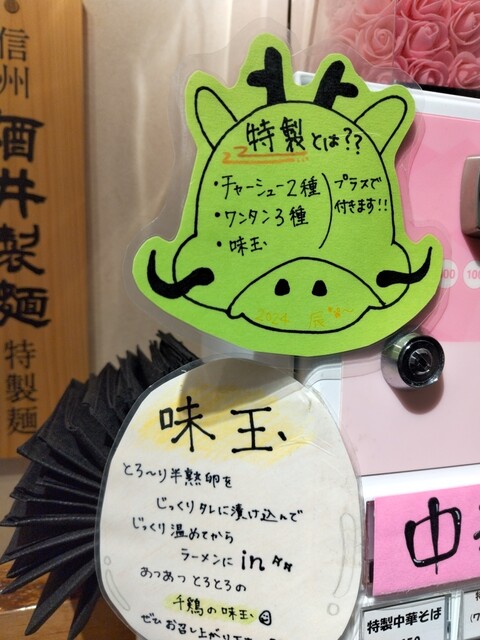 信州
酒井製麺
特製麺
特製とは??
・チャーシュー2種
・ワンタン3種
・味玉
プラスで
付きます!!
2024 辰
味玉
とろ〜り半熟卵を
じっくりタレに漬け込んで
じっくり温めてから
ラーメンにin
あつあつとろとろの
千鶏の味玉
ぜひお召し上がり
中
特製中華そば